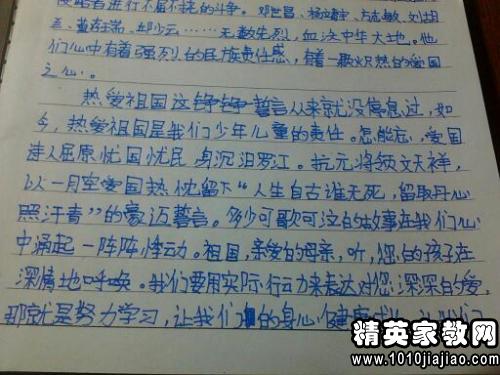 侵略者进行不屈不挠的斗争。邓世昌、杨靖宇、方志敏、刘胡
兰、董存瑞、邱少云……无数先烈，血洒中华大地。他
们心中有着强烈的民族责任感，有着一颗火热的爱国
之心。
热爱祖国这铮铮誓言从来就没停息过，如
今，热爱祖国是我们少年儿童的责任。怎能忘，爱国
诗人屈原忧国忧民身沉汨罗江。抗元将领文天祥，
以一月空爱国热忱留下“人生自古谁无死，留取丹心
照汗青”的豪迈誓言。多少可歌可泣的故事在我们心
中涌起一阵阵悸动。祖国，亲爱的母亲，听，您的孩子在
深情地呼唤。我们要用实际行动来表达对您深深的爱，
那就是努力学习，让我们的身心健康成
精英家教网
www.1010jiajiao.com